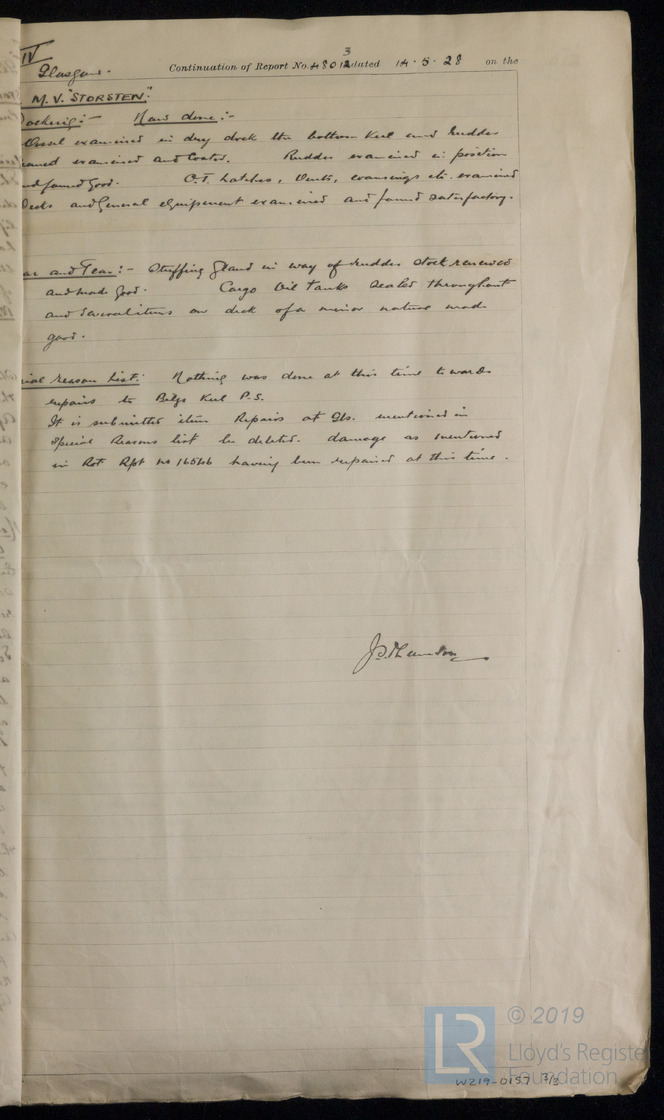 IV
Glasgow.
Continuation of Report No. 48013 dated 14·5·28 on the
M.V. "STORSTEN".
ocking:- Now done:-
Vessel examined in dry dock the bottom Keel and Rudder
eaned examined and Coated. Rudder examined in position
nd found good. C.T. hatches, Vents, coamings etc. examined
Decks and General equipment examined and found satisfactory.
ar and Tear:- Stuffing Gland in way of rudder stock renewed
and made good. Cargo Oil Tanks tested throughout
and several items on deck of a minor nature made
good.
ial reason list: Nothing was done at this time towards
repairs to Bilge Keel P.S.
It is submitted item Repairs at Gls. mentioned in
special Reasons list be deleted. damage as mentioned
in Rot Rpt No 16566 having been repaired at this time.
© 2019
LR
Lloyd's Registe
Foundation
W219-0157 3/3